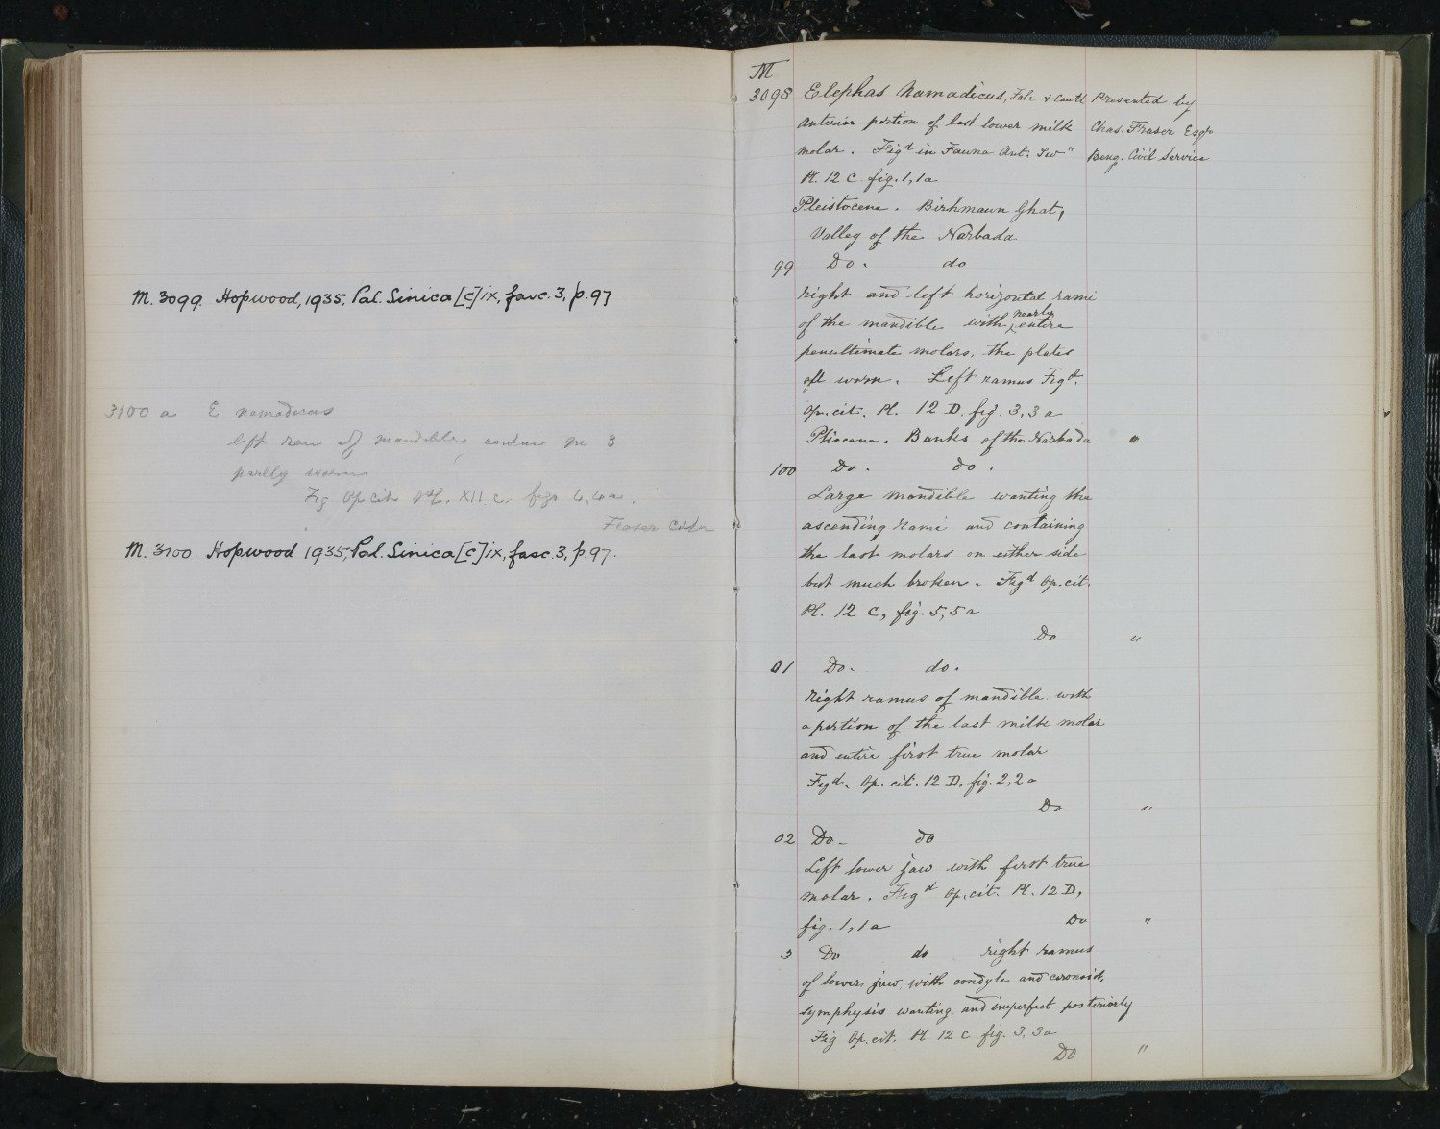 M. 3099. Hopwood, 1935, Pal. Sinica [C] ix, fasc. 3, p. 97
3100 a E namadicus
left ram of mandible, 3
partly worn
Fig Op cit Pl. XII c. figs 4, 4a.
Fraser Coln
M. 3100 Hopwood 1935, Pal. Sinica [C] ix, fasc. 3, p. 97.
M
3098 Elephas Namadicus, Falc & Cautl Presented by
Anterior portion of last lower milk Chas. Fraser Esqr
molar. Figd in Fauna Ant. Siv" Beng. Civil Service
Pl. 12 C fig. 1, 1a
Pleistocene. Birhmaun Ghat,
Valley of the Narbada
99 Do. do
Right and left horizontal rami
of the mandible with nearly entire
penultimate molars, the plates
all worn. Left ramus Figd.
Op. cit. Pl. 12 D. fig. 3, 3a
Pliocene. Banks of the Narbada "
100 Do. do.
Large mandible wanting the
ascending rami and containing
the last molars on either side
but much broken. Figd Op. cit.
Pl. 12 C, fig. 5, 5a
Do "
01 Do. do.
Right ramus of mandible with
a portion of the last milk molar
and entire first true molar
Figd. Op. cit. 12 D. fig. 2, 2a
Do "
02 Do. do
Left lower jaw with first true
molar. Figd Op. cit. Pl. 12 D,
fig. 1, 1a Do "
3 Do do right ramus
of lower jaw, with condyle and coronoid,
symphysis wanting and imperfect posteriorly
Fig Op. cit. Pl 12 C fig. 3, 3a
Do "